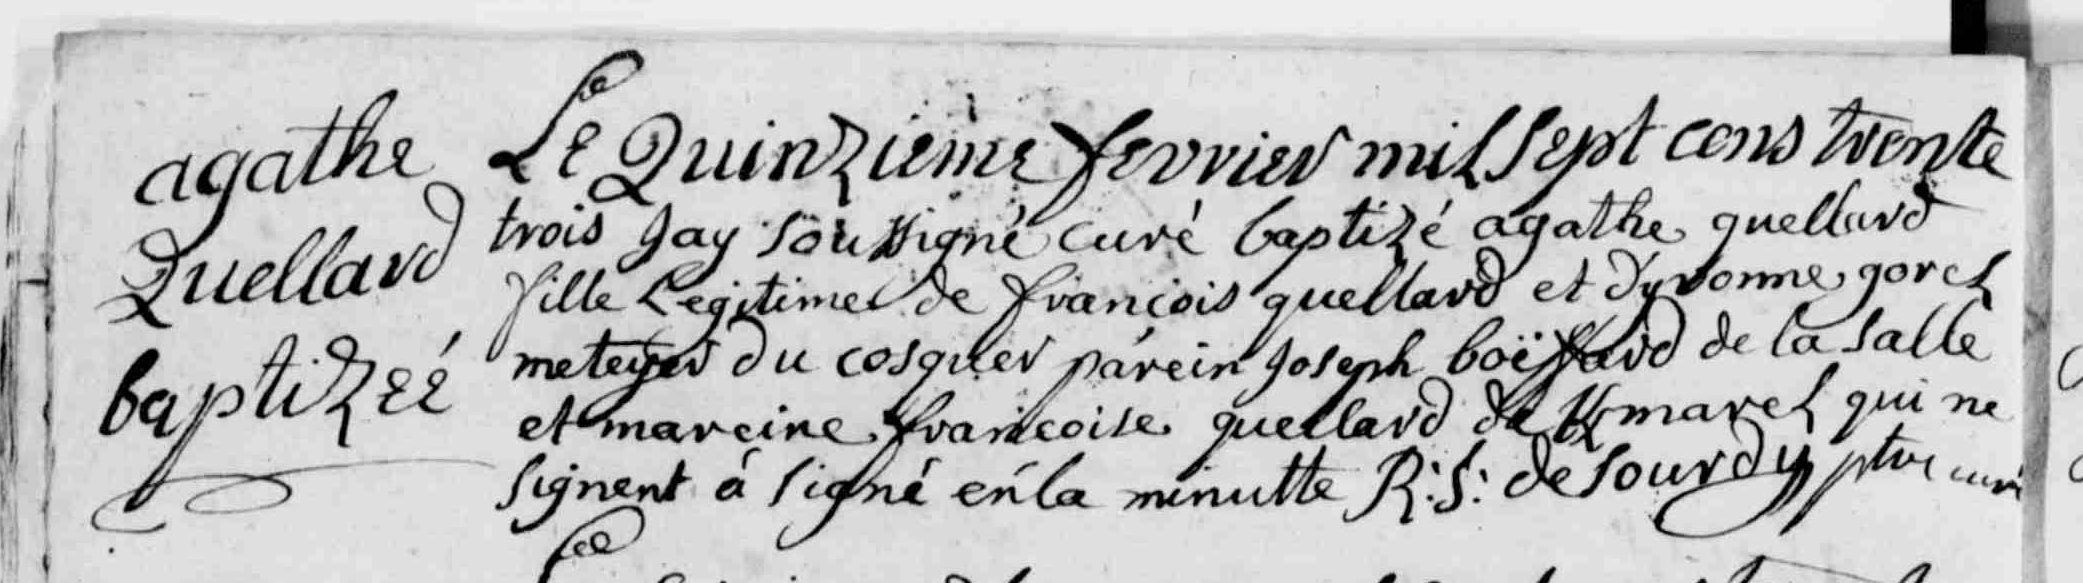 agathe
Quellard
baptizéé
Le Quinziéme fevrier mil sept cens trente
trois Jay soussigné curé baptizé agathe quellard
fille Legitime de francois quellard et d'yvonne gorel
meteyer du cosquer parein Joseph boëffard de la salle
et mareine francoise quellard de Kmarel qui ne
signent á signé en la minutte R: S: de Sourdy ptre curé